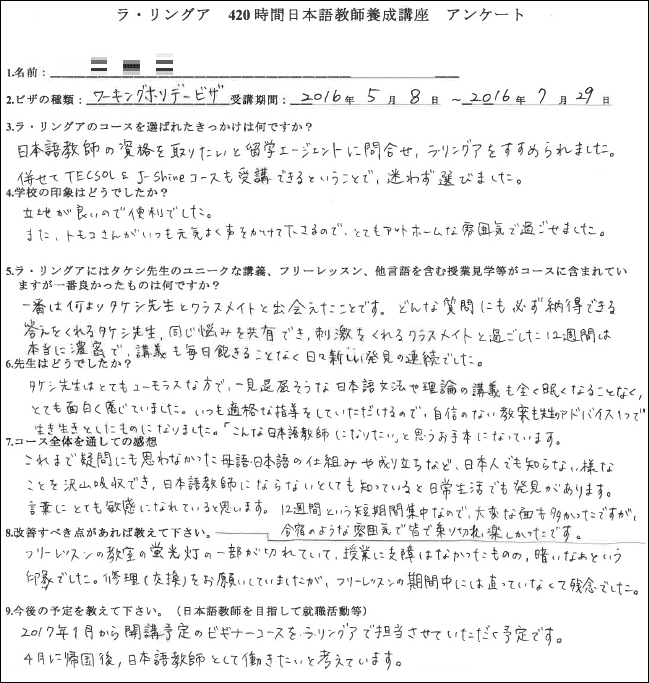 ラ・リングア 420時間日本語教師養成講座 アンケート
1.名前：
2.ビザの種類：ワーキングホリデービザ 受講期間：2016年 5月 8日 ～2016年 7月 29日
3.ラ・リングアのコースを選ばれたきっかけは何ですか？
日本語教師の資格を取りたいと留学エージェントに問合せ、ラ・リングアをすすめられました。
併せてTECSOL & J-Shineコースも受講できるということで、迷わず選びました。
4.学校の印象はどうでしたか？
立地が良いので便利でした。
また、トモコさんがいつも元気よく声をかけて下さるので、とてもアットホームな雰囲気で過ごせました。
5.ラ・リングアにはタケシ先生のユニークな講義、フリーレッスン、他言語を含む授業見学等がコースに含まれてい
ますが一番良かったものは何ですか？
一番は何よりタケシ先生とクラスメイトと出会えたことです。どんな質問にも必ず納得できる
答えをくれるタケシ先生、同じ悩みを共有でき、刺激をくれるクラスメイトと過ごした12週間は
本当に濃密で、講義も毎日飽きることなく日々新しい発見の連続でした。
6.先生はどうでしたか？
タケシ先生はとてもユーモラスな方で、一見退屈そうな日本語文法や理論の講義も全く眠くなることなく、
とても面白く感じていました。いつも適格な指導をしていただけるので、自信のない教案も先生のアドバイス1つで
生き生きとしたものになりました。「こんな日本語教師になりたい」と思うお手本になっています。
7.コース全体を通しての感想
これまで疑問にも思わなかった母語・日本語の仕組みや成り立ちなど、日本人でも知らない様な
ことを沢山吸収でき、日本語教師にならないとしても知っていると日常生活でも発見があります。
言葉にとても敏感になれていると思います。12週間という短期間集中なので、大変な面も多かったですが、
合宿のような雰囲気で皆で乗り切れ、楽しかったです。
8.改善すべき点があれば教えて下さい。
フリーレッスンの教室の蛍光灯の一部が切れていて、授業に支障はなかったものの、暗いなぁという
印象でした。修理(交換)をお願いしていましたが、フリーレッスンの期間中には直っていなくて残念でした。
9.今後の予定を教えて下さい。（日本語教師を目指して就職活動等）
2017年1月から開講予定のビギナーコースをラ・リングアで担当させていただく予定です。
4月に帰国後、日本語教師として働きたいと考えています。